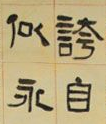 誇自
似永